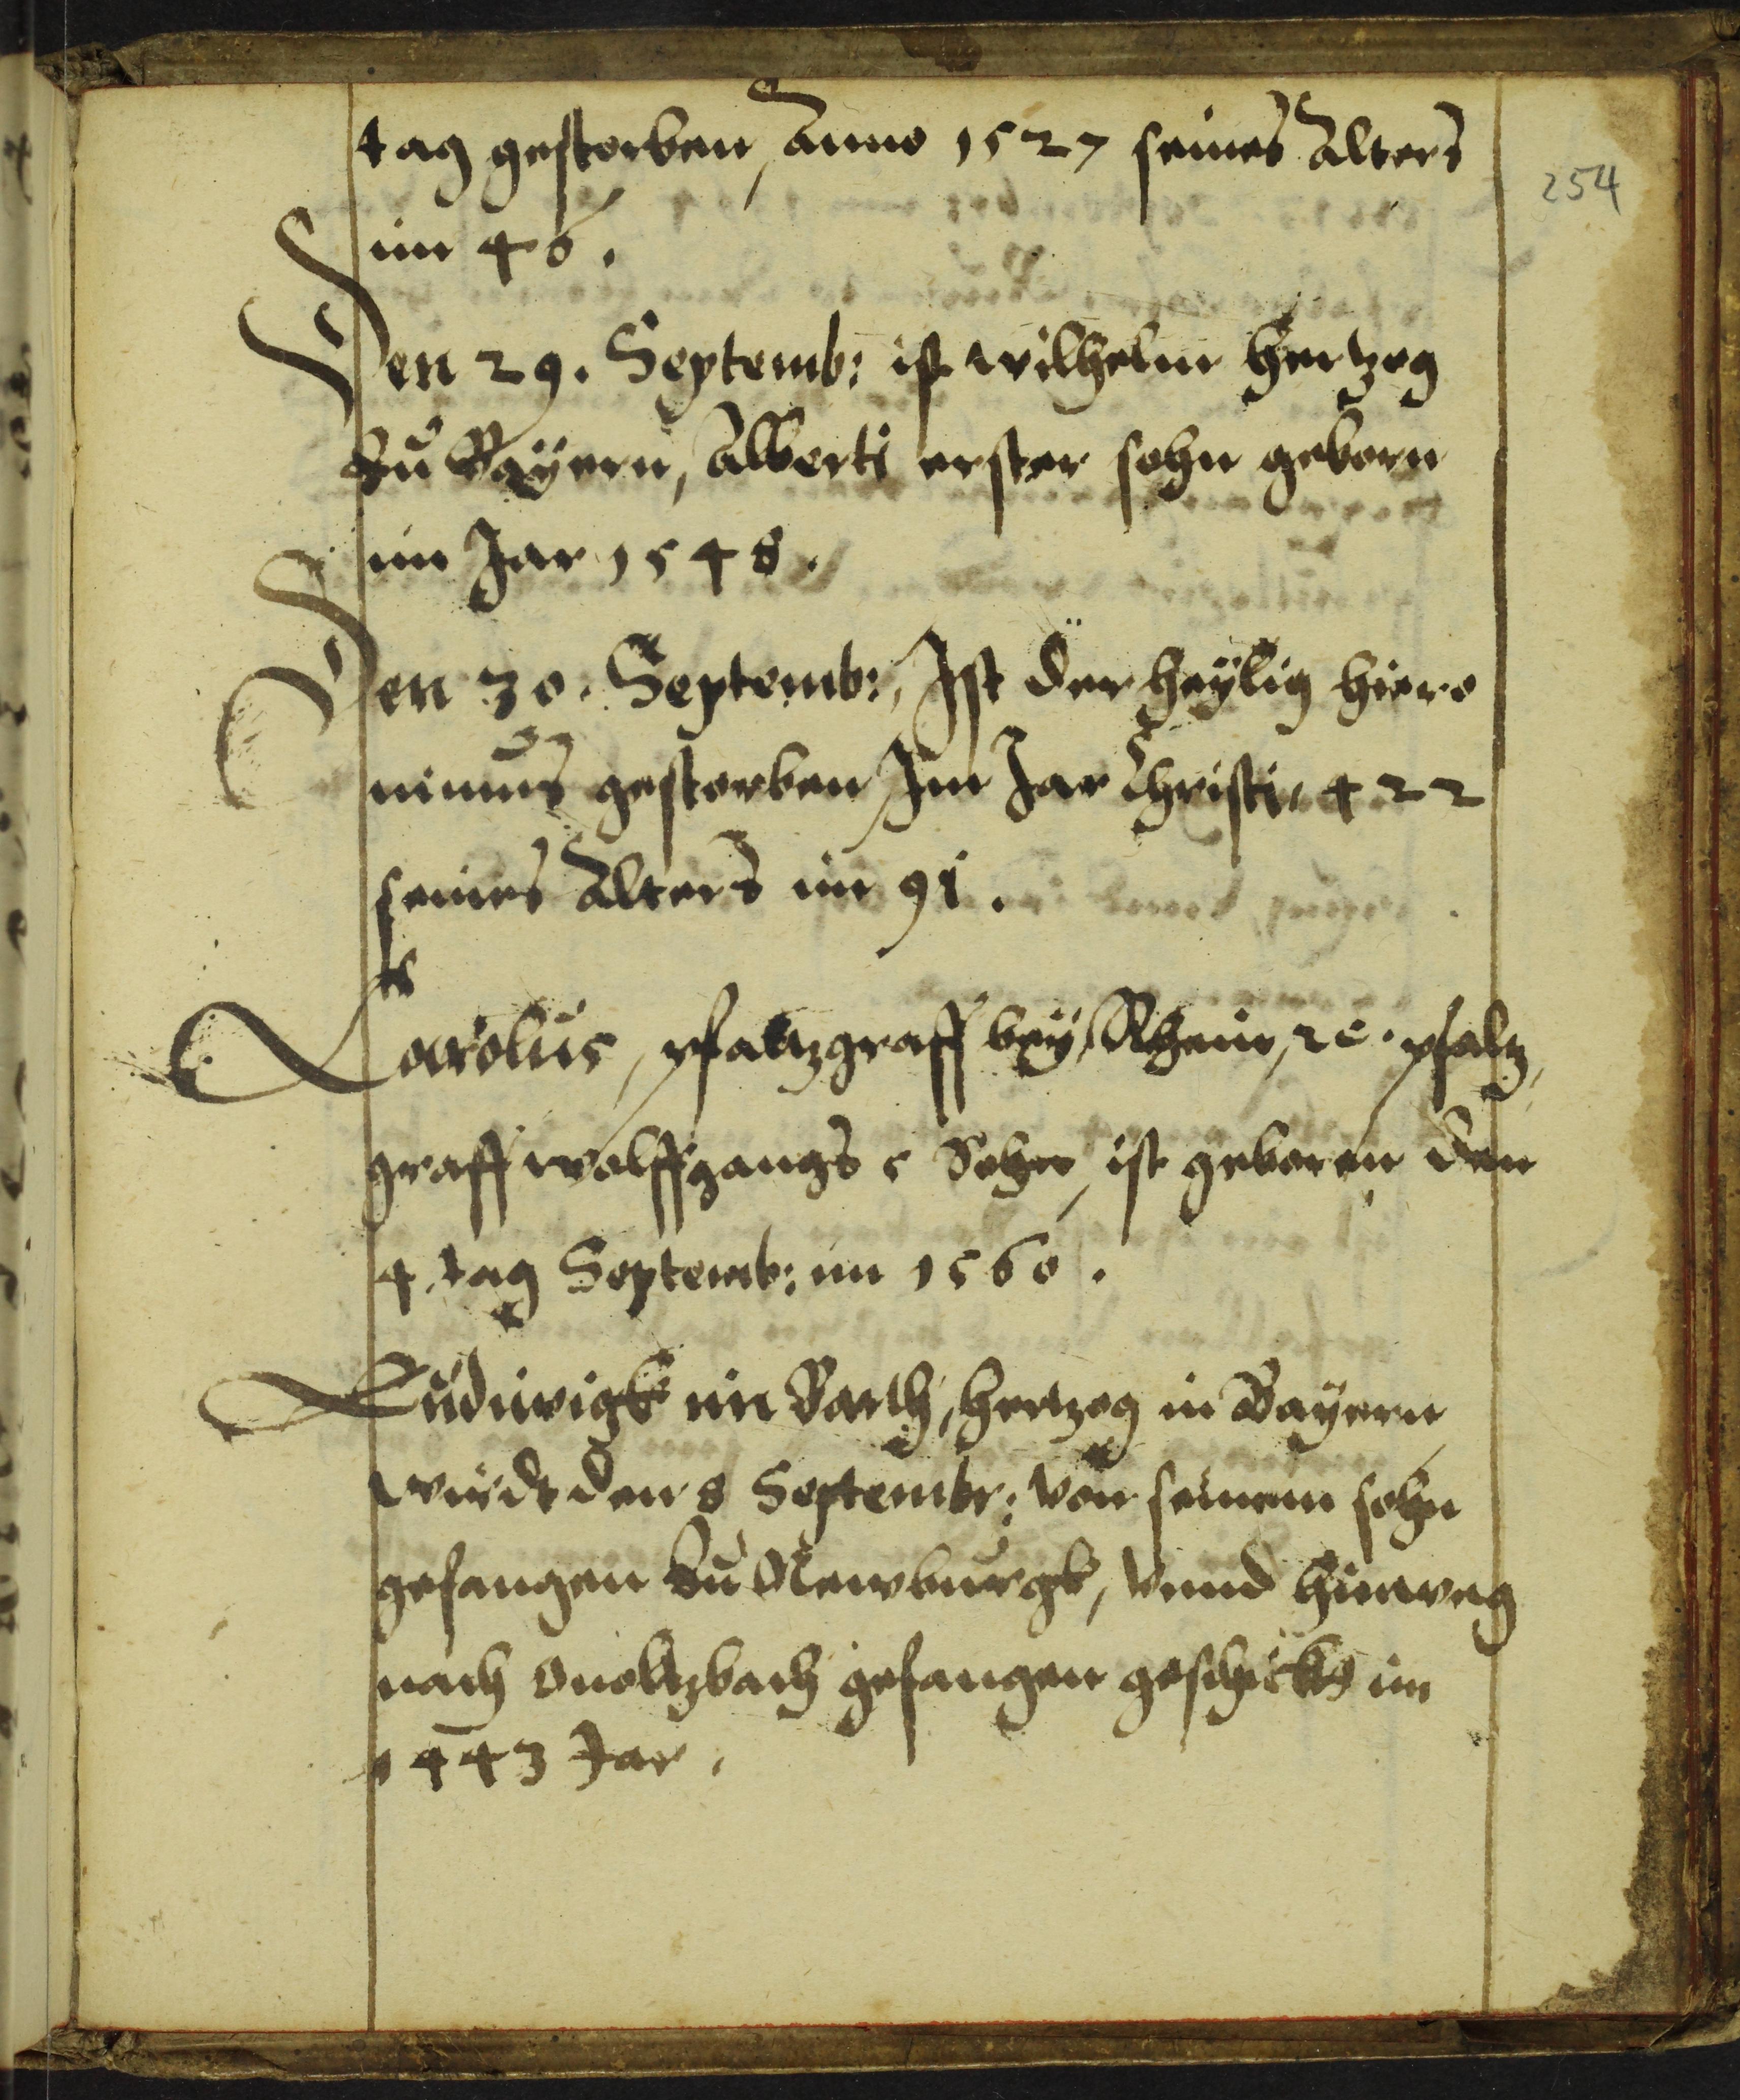 tag gestorben, Anno 1527 seines Alters
254
im 46.
Den 29. Septemb: ist wilhelm hertzog
zu Bayern, Alberti erster sohn geborn
im Jar 1548.
Den 30. Septemb: Ist der heylig hiero
nimus gestorben, Im Jar Christi, 422
seines Alters im 91.
Carolus, pfaltzgraff bey Rhein, ꝛc. pfaltz,
graff wolffgangs 5 Sohn, ist geboren den
4 tag Septemb: im 1560.
Ludwigk im Barth, hertzog in Bayern
wurdt den 8 Septembr: von seinem sohn
gefangen zu Newburgk, vnnd hinweg
nach Onoltzbach gefangen geschickt im
1443 Jar.